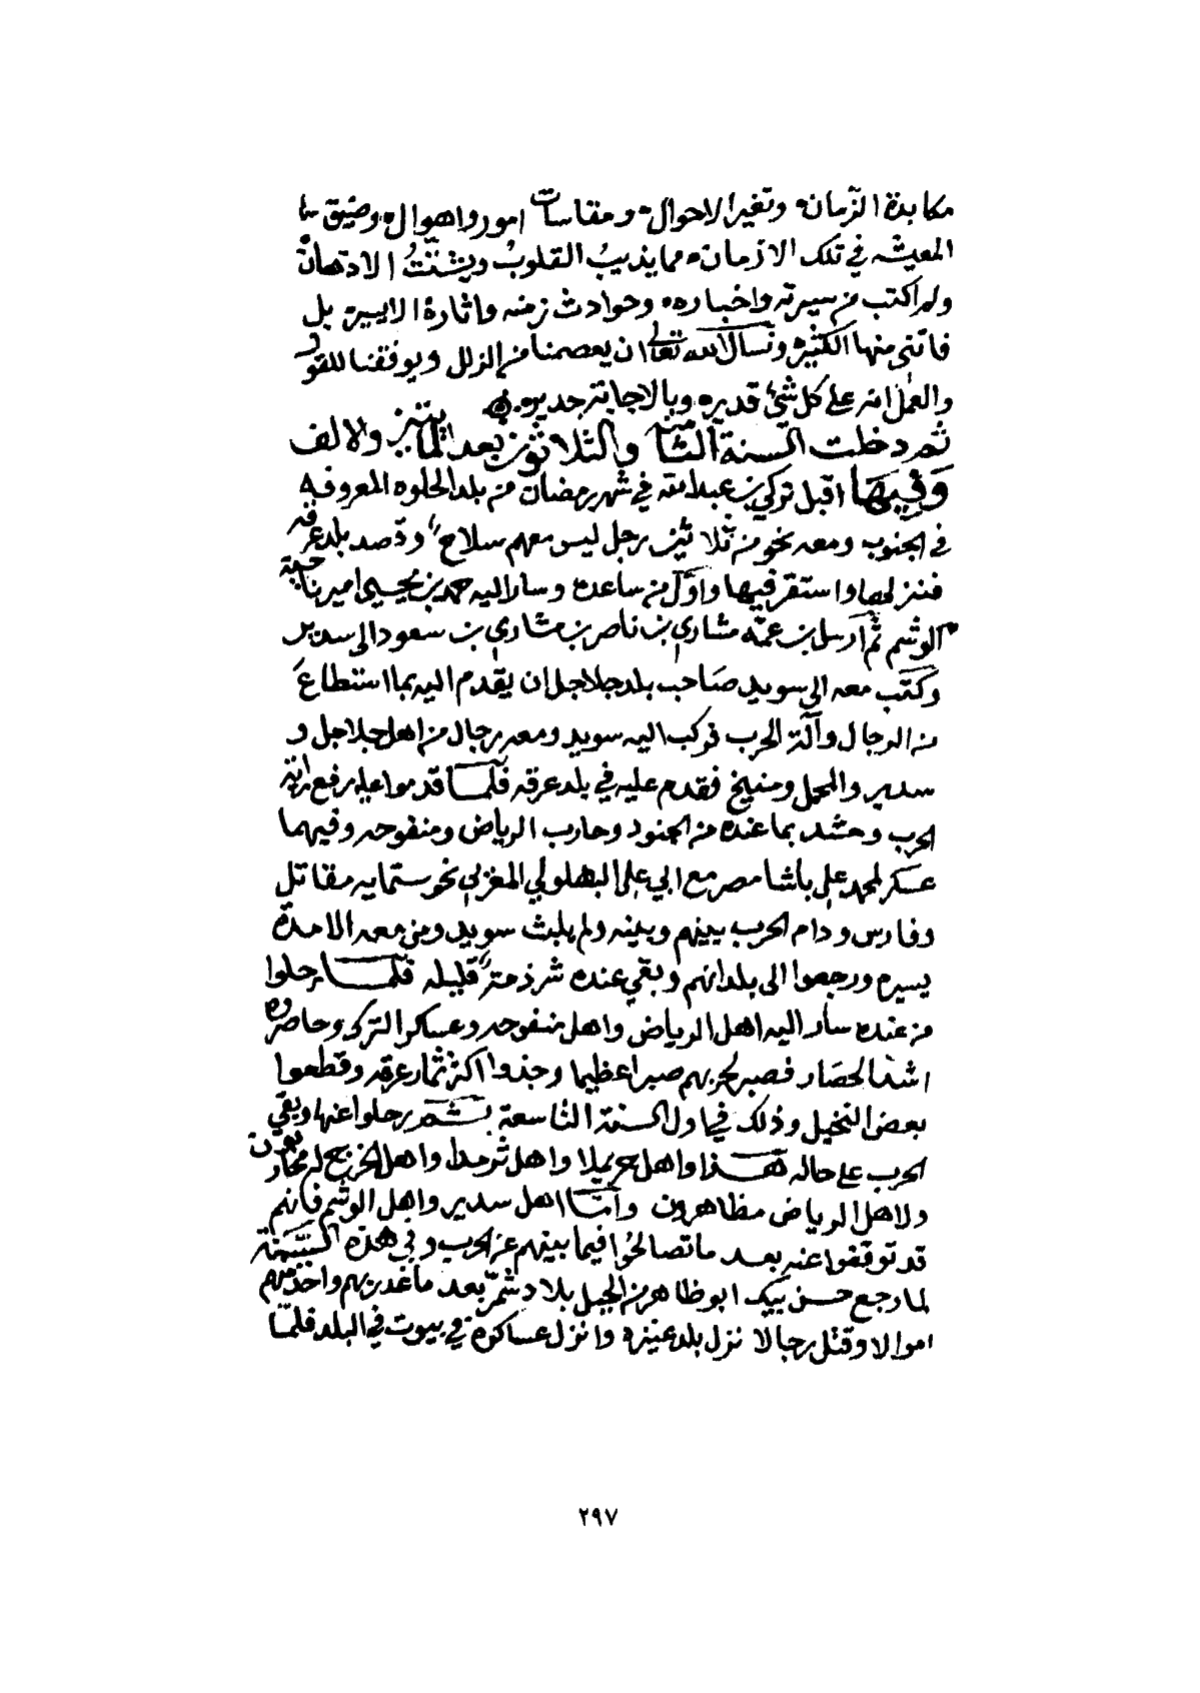 مكابدة الزمان وتغير الاحوال ومقاسات امور واهوال وضيق
المعيشه في تلك الازمان مما يذيب القلوب ويشتت الاذهان
ولم اكتب من سيرته واخباره وحوادث زمنه واثاره الا يسير بل
فاتني منها الكثير ونسأل الله تعالى ان يعصمنا من الزلل ويوفقنا للقول
والعمل انه على كل شئ قدير وبالاجابة جدير
ثم دخلت السنة الثامنة والثلاثون بعد المايتين والالف
وفيها اقبل تركي بن عبدالله في شهر رمضان من بلد الحلوه المعروفه
في الجنوب ومعه نحو من ثلاثين رجل ليس معهم سلاح وقصد بلد عرقه
فنزلها واستقر فيها واول من ساعده وسار اليه حمد بن يحيى امير ناحية
الوشم ثم ارسل بن عمه مشاري بن ناصر بن مشاري بن سعود الى سدير
وكتب معه الى سويد صاحب بلد جلاجل ان يقدم اليه بما استطاع
من الرجال وآلة الحرب فركب اليه سويد ومعه رجال من اهل جلاجل و
سدير والمحمل ومنيخ فقدم عليه في بلد عرقه فلما قدموا عليه رفع راية
الحرب وحشد بما عنده من الجنود وحارب الرياض ومنفوحه وفيهما
عسكر لمحمد علي باشا مصر مع ابي علي البهلولي المغربي نحو ستمايه مقاتل
وفارس ودام الحرب بينهم وبينه ولم يلبث سويد ومن معه الا مدة
يسيره ورجعوا الى بلدانهم وبقي عنده شرذمة قليله فلما رحلوا
من عنده سار اليه اهل الرياض واهل منفوحه وعساكر الترك وحاصروه
اشد الحصار فصبر لحربهم صبرا عظيما وجذوا اكثر ثمار عرقه وقطعوا
بعض النخيل وذلك في اول السنة التاسعة ثم رحلوا عنها وبقي
الحرب على حاله هذا واهل حريملا واهل ثرمدا واهل الخرج له محاربون
ولاهل الرياض مظاهرون وأما اهل سدير واهل الوشم فانهم
قد توقفوا عنه بعد ما تصالحوا فيما بينهم عن الحرب وفي هذه السنة
لما رجع حسن بيك ابو ظاهر من الجبل بلاد شمر بعد ما غدر بهم واخذ منهم
اموالا وقتل رجالا نزل بلد عنيزه وانزل عساكره في بيوت في البلد فلما
٢٩٧